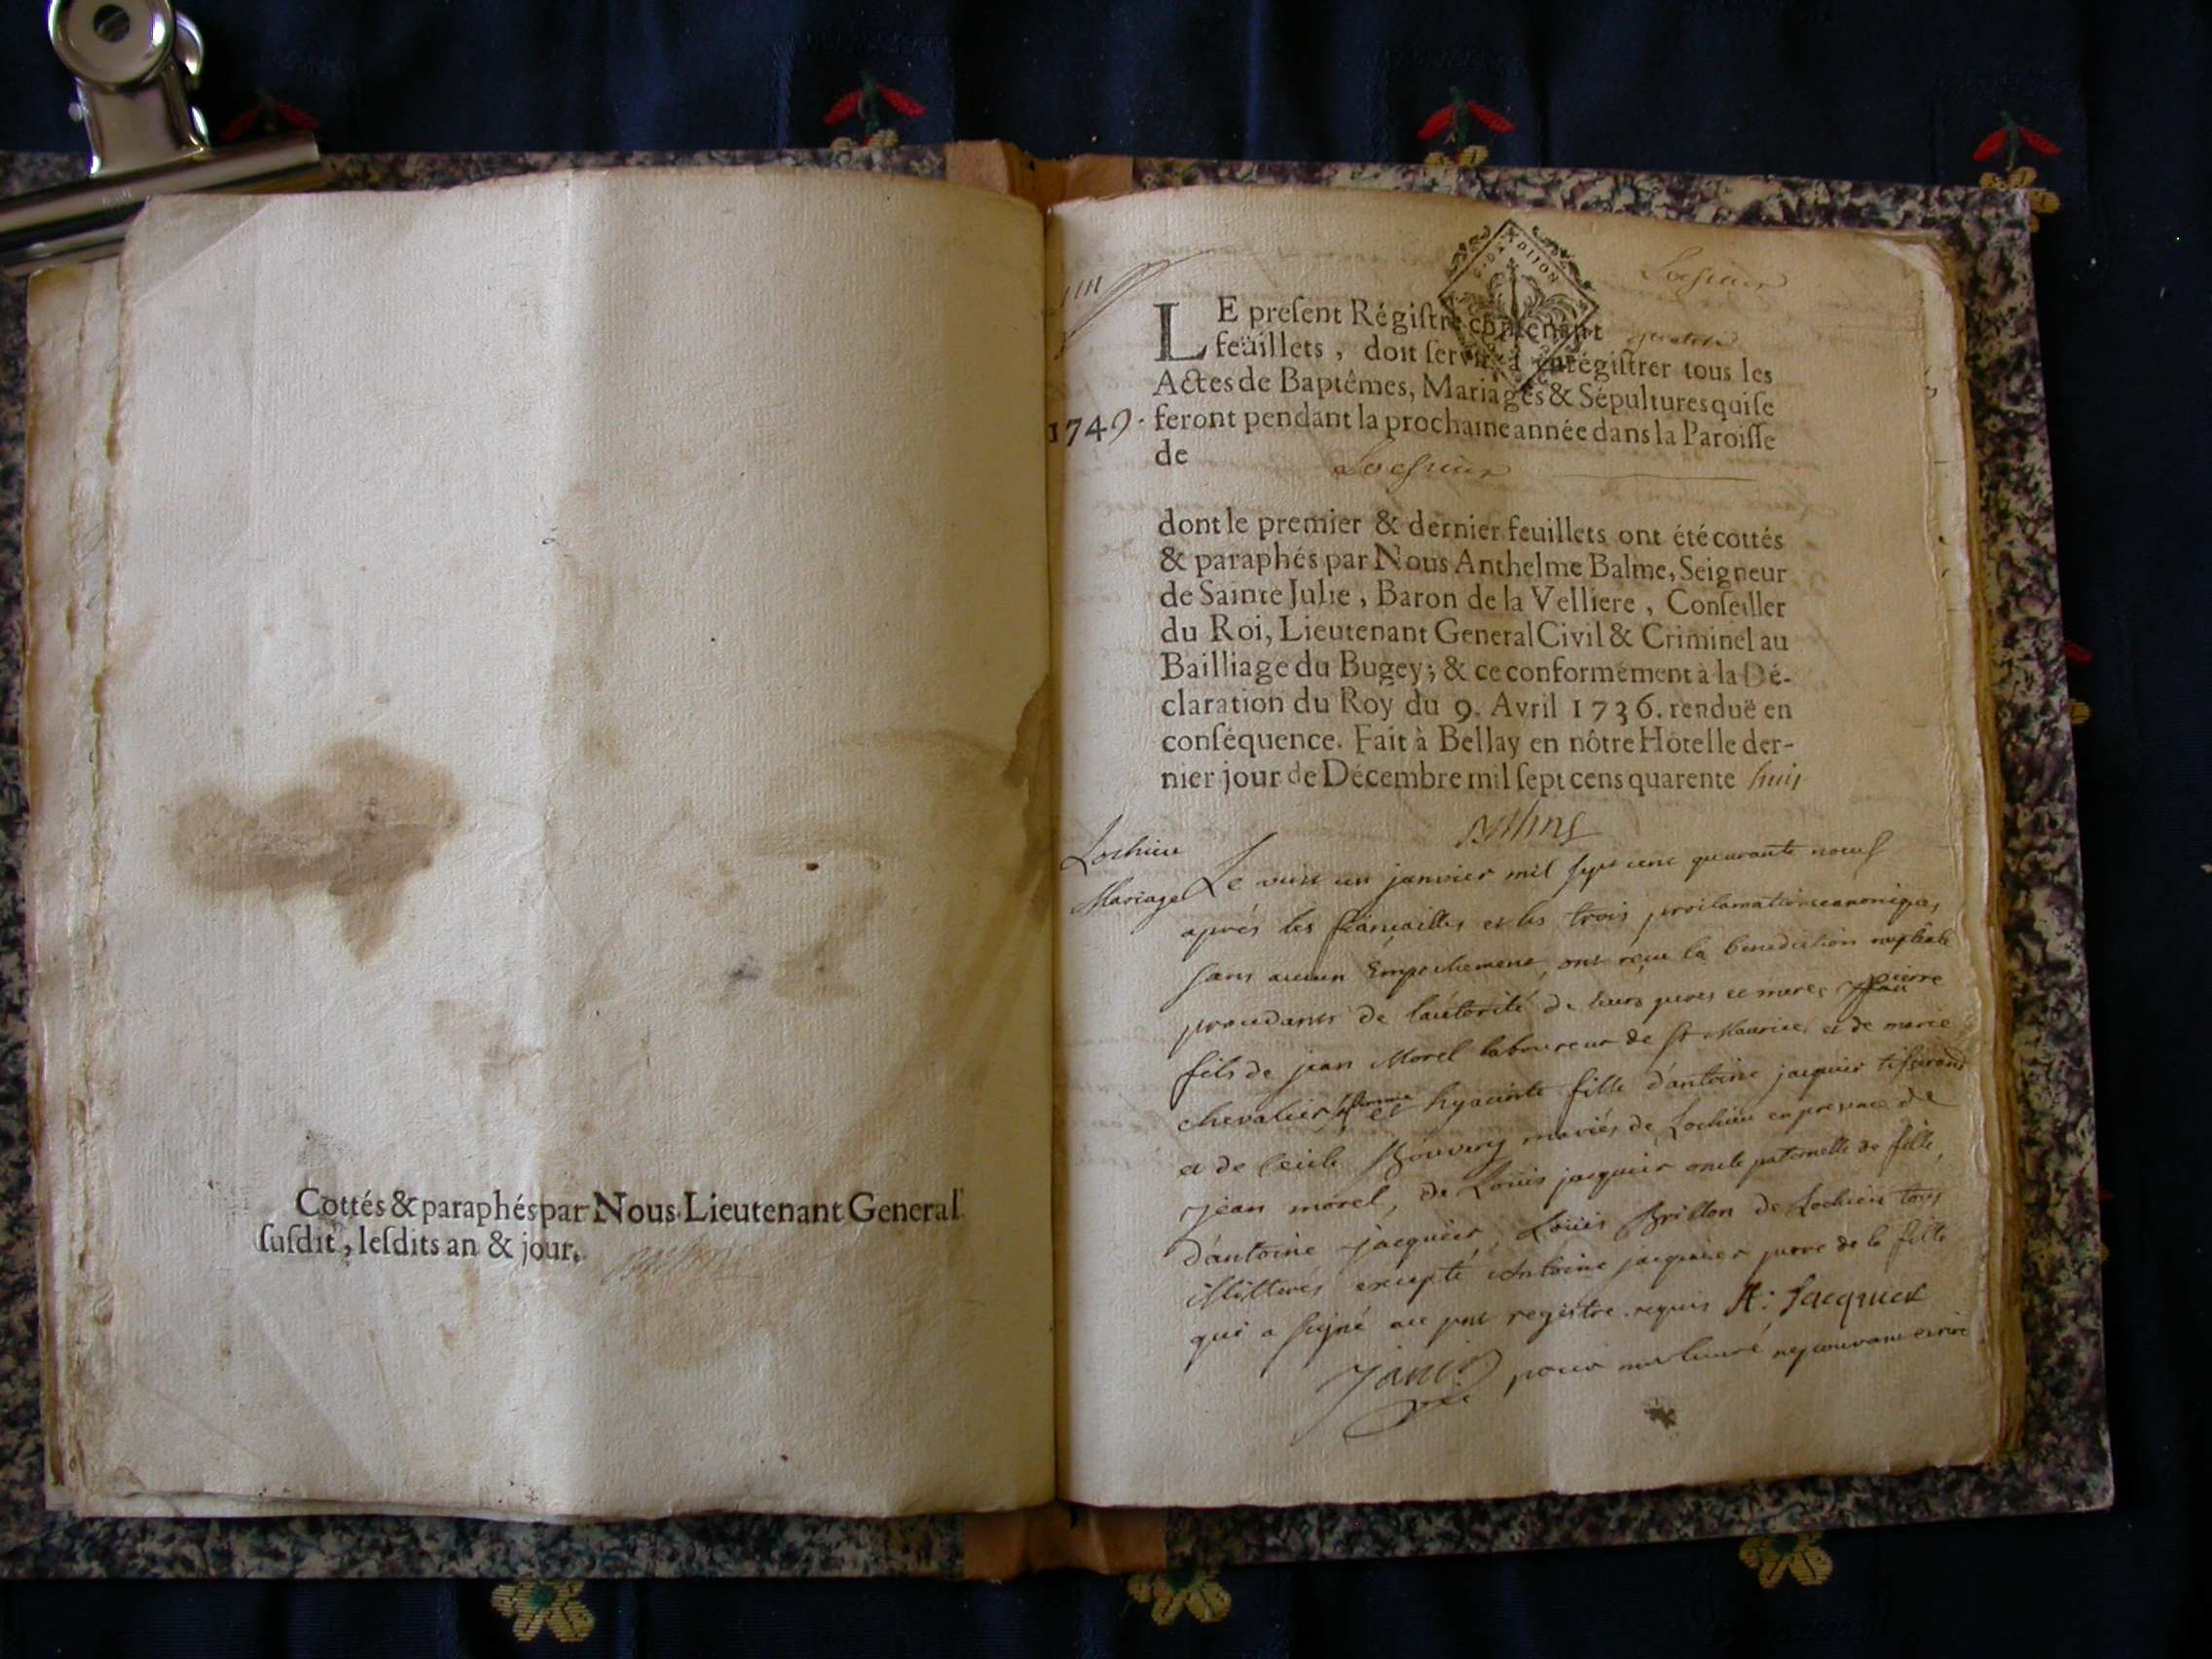 Cottés & paraphés par Nous Lieutenant General
susdit, lesdits an & jour.
Lochieu
LE present Régistre contenant quatre
feüillets, doit servir à enrégistrer tous les
Actes de Baptêmes, Mariages & Sépultures qui se
1749. feront pendant la prochaine année dans la Paroisse
de Lochieu
dont le premier & dernier feuillets ont été cottés
& paraphés par Nous Anthelme Balme, Seigneur
de Sainte Julie, Baron de la Velliere, Conseiller
du Roi, Lieutenant General Civil & Criminel au
Bailliage du Bugey; & ce conformément à la Dé-
claration du Roy du 9. Avril 1736. renduë en
conséquence. Fait à Bellay en nôtre Hôtel le der-
nier jour de Décembre mil sept cens quarente huit
Balme
Lochieu
Mariage
Le vint un janvier mil sept cent quarante neuf
aprés les fiançailles et les trois proclamations canoniques
sans aucun Empechement, ont reçu la benediction nuptiale
procedants de l'autorité de leurs peres et meres pierre
fils de jean Morel laboureur de st Maurice, et de marie
chevalier et hyacinte fille d'antoine jacquier tisserand
et de Cecile Bouvery mariés de Lochieu en presence de
jean morel, de Loüis jacquier oncle paternelle de fille,
d'antoine jacquier, Loüis Brillon de Lochieu tous
illitteres excepté Antoine jacquier pere de la fille
qui a signé au pnt registre requis A: Jacquier
Janin pour mr le curé ne pouvant ecrire